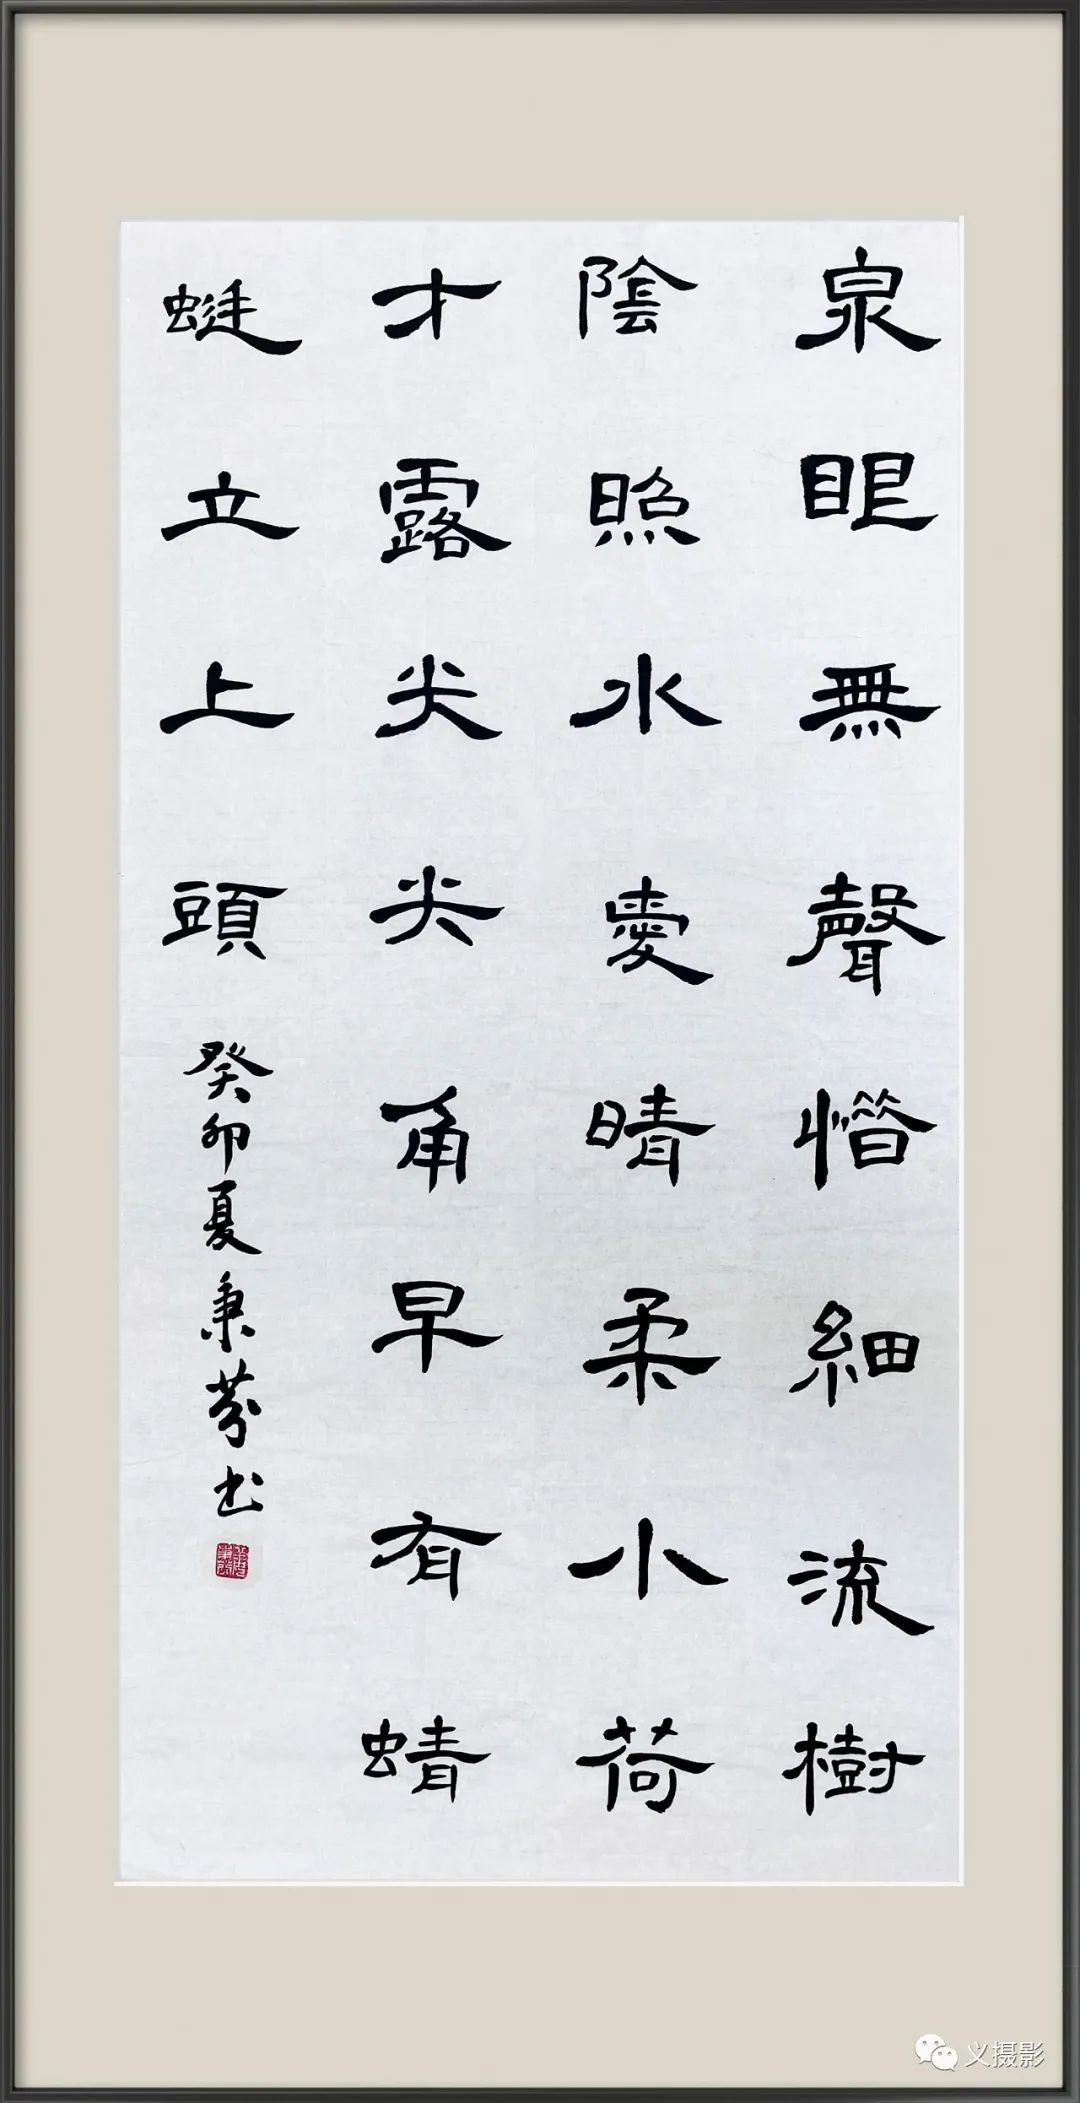 泉眼無聲惜細流樹
陰照水愛晴柔小荷
才露尖尖角早有蜻
蜓立上頭
癸卯夏秉芬书
义摄影